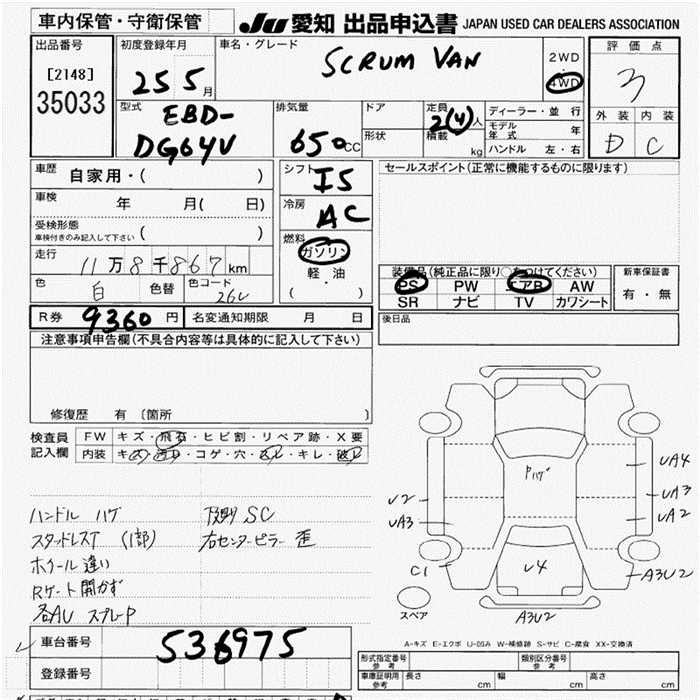 車内保管・守衛保管
JU 愛知 出品申込書 JAPAN USED CAR DEALERS ASSOCIATION
出品番号
[2148]
35033
初度登録年月
25 5 月
車名・グレード
SCRUM VAN
2WD
4WD
評価点
3
外装 内装
D C
型式
EBD-
DG64V
排気量
650cc
ドア
形状
定員
2(4)人
積載
kg
ディーラー・並行
モデル年式 年
ハンドル 左・右
車歴
自家用・( )
車検
年 月( 日)
受検形態
車検付きのみ記入して下さい ( )
走行
11万8千867km
色
白
色替
色コード
26U
シフト
I5
冷房
AC
燃料
ガソリン
軽・油
( )
セールスポイント(正常に機能するものに限ります)
装備品(純正品に限り○をつけてください)
PS PW エアB AW
SR ナビ TV カワシート
新車保証書
有・無
R券 9360円
名変通知期限 月 日
後日品
注意事項申告欄(不具合内容等は具体的に記入して下さい)
修復歴 有 〔箇所 〕
検査員
記入欄
FW キズ・飛石・ヒビ割・リペア跡・X要
内装 キズ・汚れ・コゲ・穴・スレ・キレ・破レ
ハンドル ハゲ
スタッドレスT (1部)
ホイール 違い
Rゲート開かず
各AU スプレーP
下廻り SC
右センターピラー 歪
Pハゲ
U2
UA3
C1
UA4
UA3
UA2
A3U2
U4
A3U2
スペア
A-キズ E-エクボ U-凹み W-補修跡 S-サビ C-腐食 XX-交換済
車台番号
536975
登録番号
形式指定番号
参考
類別区分番号
参考
車庫証明用
参考
長さ cm
幅 cm
高さ cm